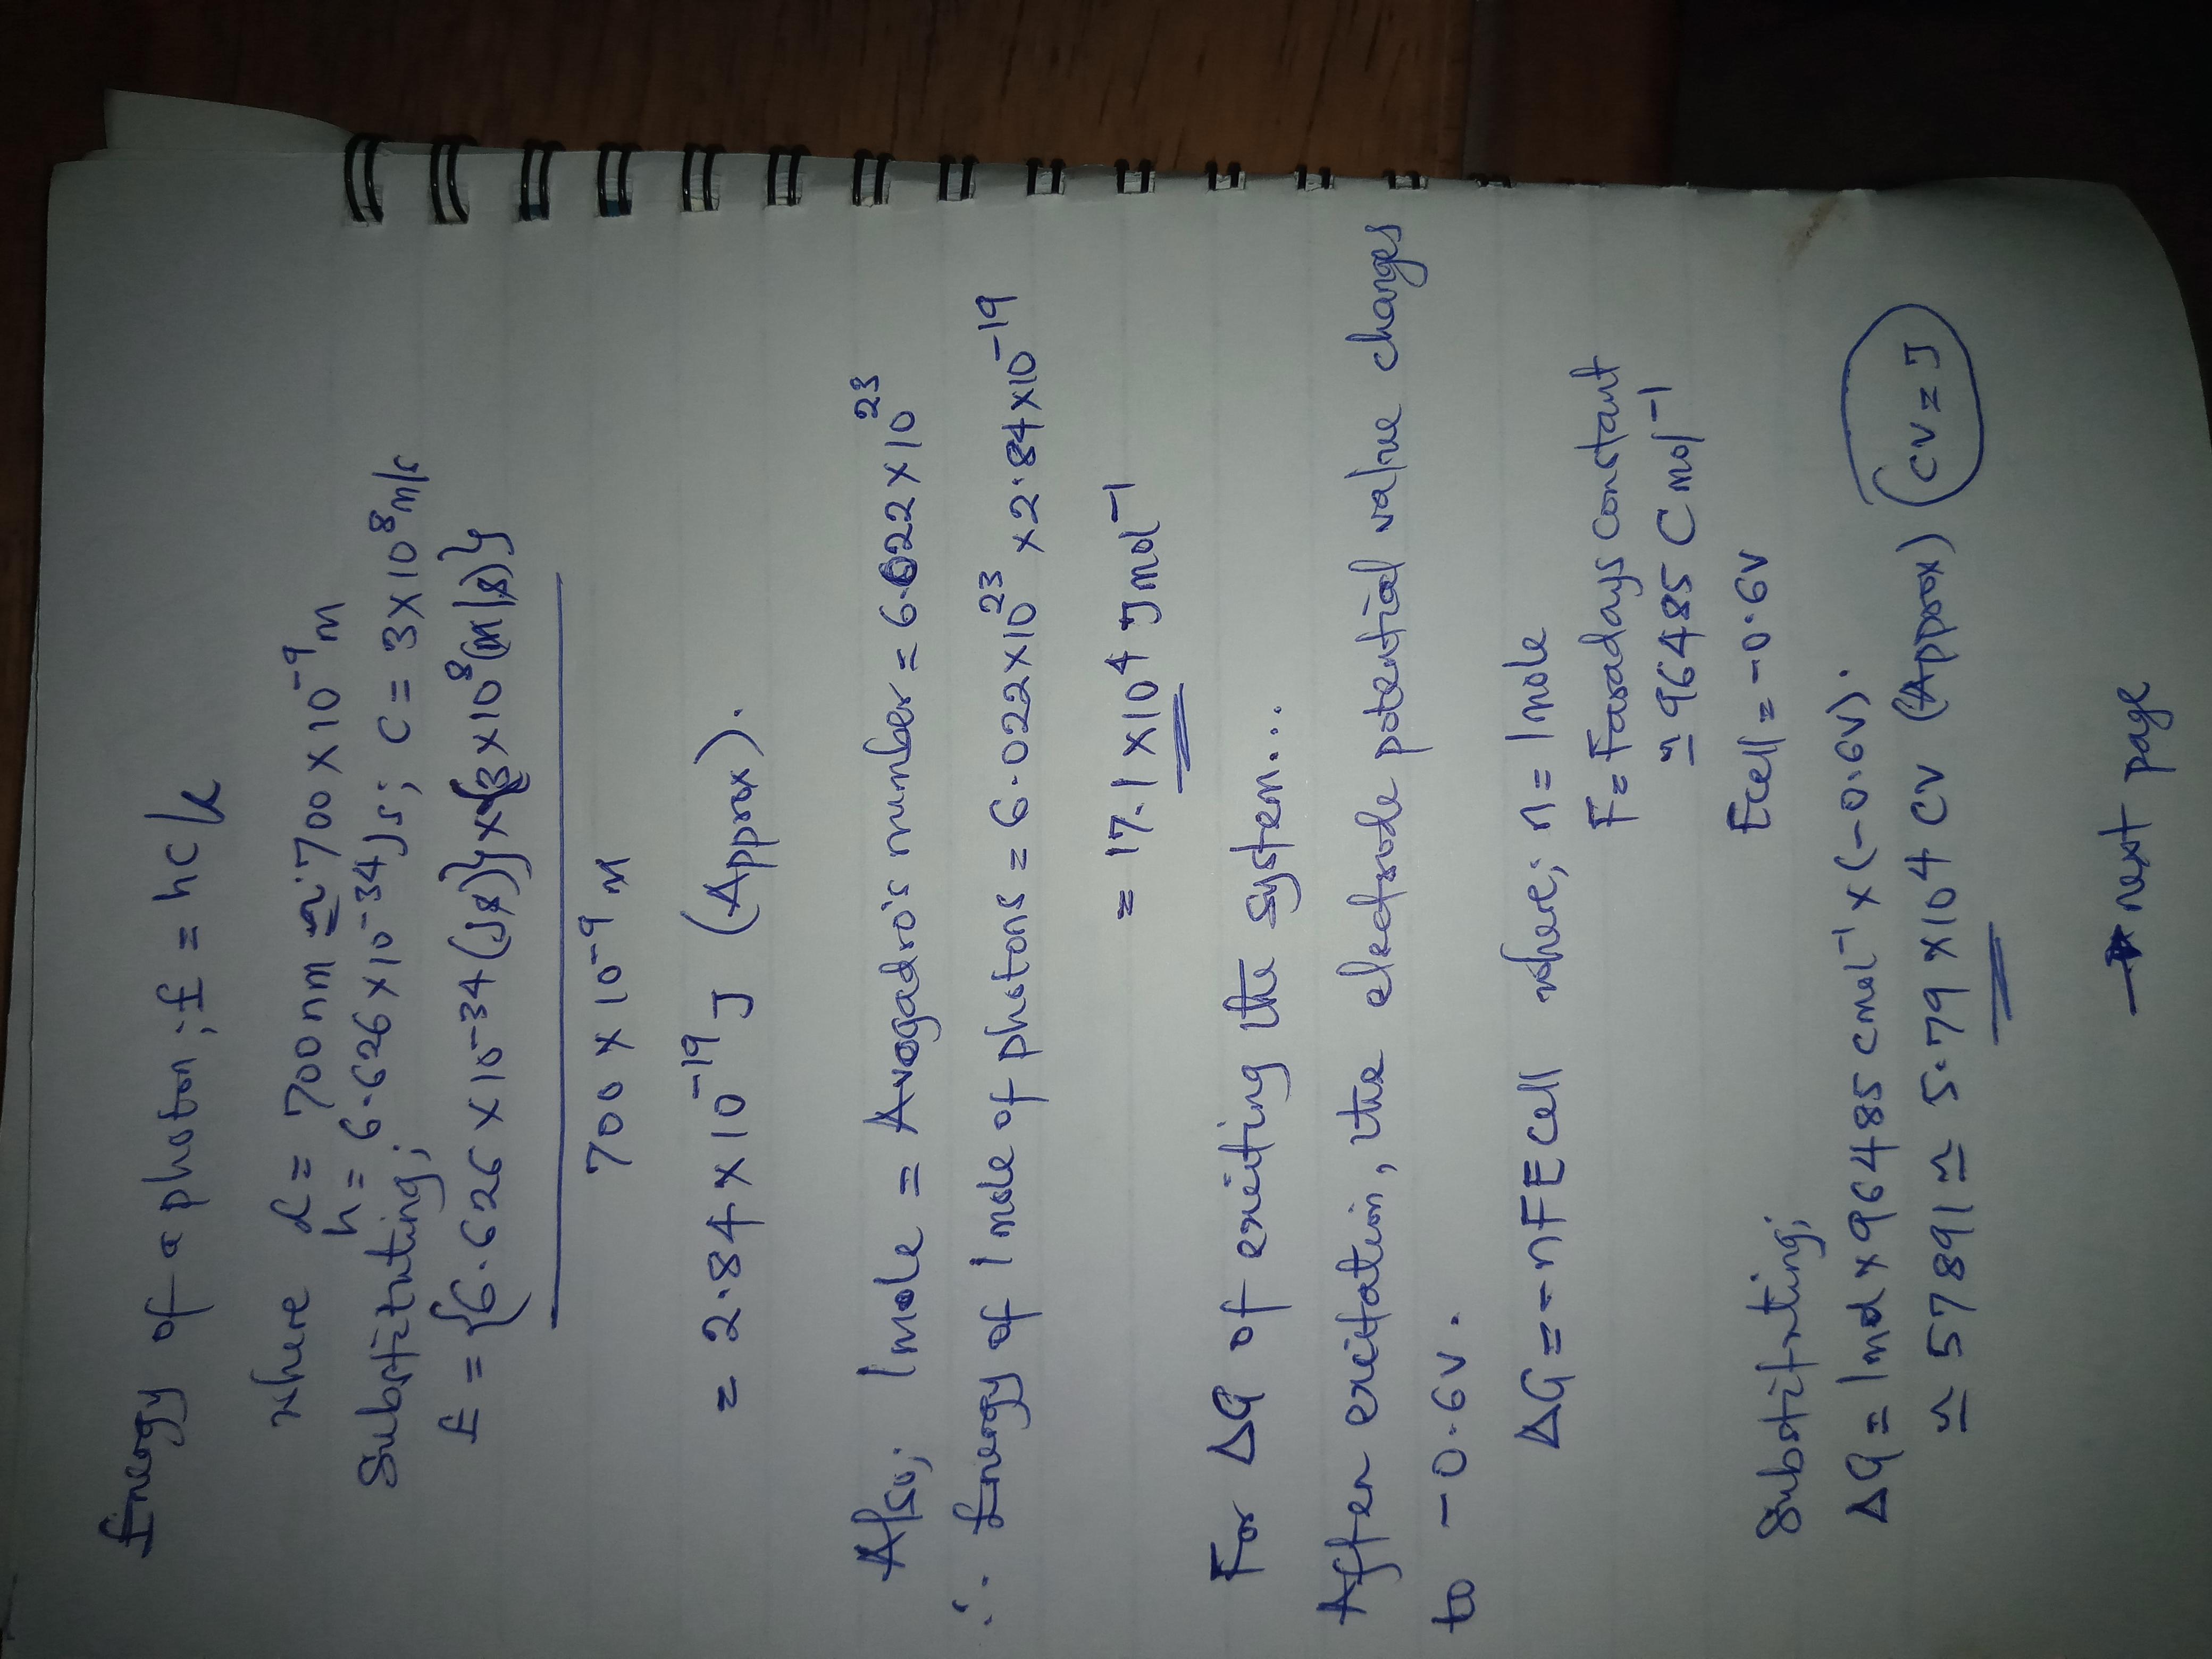 Energy of a photon; E = hc/λ
where λ = 700nm ≃ 700 × 10⁻⁹m
h = 6.626 × 10⁻³⁴Js; C = 3 × 10⁸m/s
Substituting;
E = {6.626 × 10⁻³⁴(Js)} × {3 × 10⁸(m/s)}
700 × 10⁻⁹ m
= 2.84 × 10⁻¹⁹ J (Approx).
Also; 1mole = Avogadro's number = 6.022 × 10²³
∴ Energy of 1 mole of photons = 6.022 × 10²³ × 2.84 × 10⁻¹⁹
= 17.1 × 10⁴ Jmol⁻¹
For ΔG of exciting the system...
After excitation, the electrode potential value changes
to -0.6V.
ΔG = -nFEcell where; n = 1mole
F = Faradays constant
≃ 96485 C mol⁻¹
Ecell = -0.6V
Substituting;
ΔG = 1mol × 96485 Cmol⁻¹ × (-0.6V).
≃ 57891 ≃ 5.79 × 10⁴ CV (Approx) (CV = J
→ next page